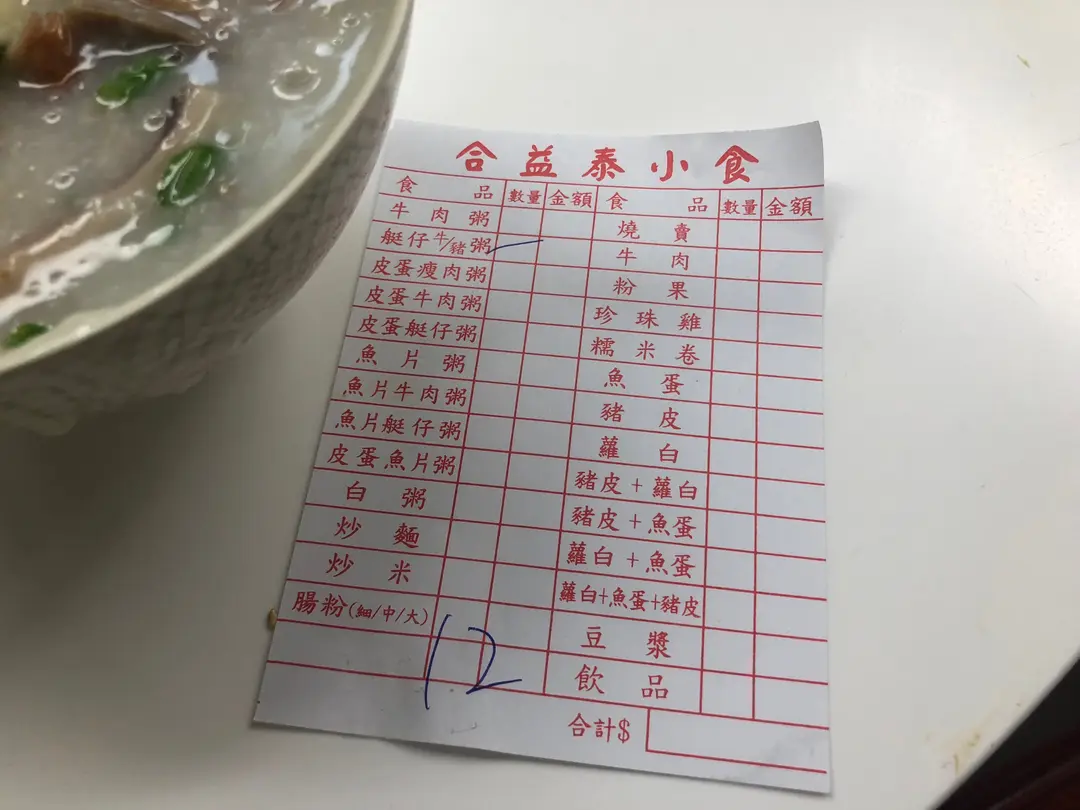 合益泰小食
食品 數量 金額 食品 數量 金額
牛肉粥 燒賣
艇仔牛/豬粥 牛肉
皮蛋瘦肉粥 粉果
皮蛋牛肉粥 珍珠雞
皮蛋艇仔粥 糯米卷
魚片粥 魚蛋
魚片牛肉粥 豬皮
魚片艇仔粥 蘿白
皮蛋魚片粥 豬皮+蘿白
白粥 豬皮+魚蛋
炒麵 蘿白+魚蛋
炒米 蘿白+魚蛋+豬皮
腸粉(細/中/大) 豆漿
12 飲品
合計$